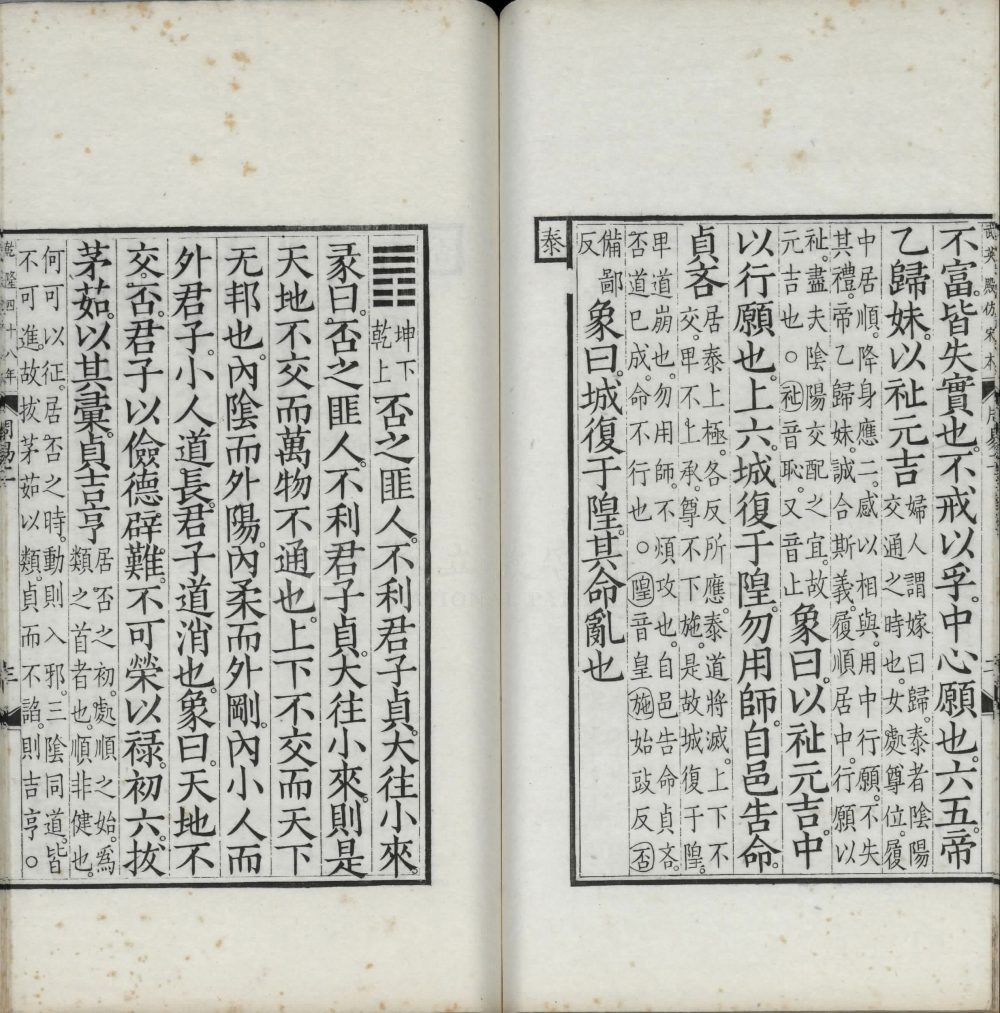 武英殿仿宋本
不富。皆失實也。不戒以孚。中心願也。六五。帝
乙歸妹。以祉元吉 婦人謂嫁曰歸。泰者陰陽交通之時也。女處尊位。履
中居順。降身應二。感以相與。用中行願。不失其禮。帝乙歸妹。誠合斯義。履順居中。行願以
祉。盡夫陰陽交配之宜。故元吉也○祉音恥。又音止 象曰。以祉元吉。中
以行願也。上六。城復于隍。勿用師。自邑告命。
貞吝 居泰上極。各反所應。泰道將滅。上下不交。卑不上承。尊不下施。是故城復于隍。
卑道崩也。勿用師。不煩攻也。自邑告命貞吝。否道已成。命不行也○隍音皇施始豉反否
備鄙反 象曰。城復于隍。其命亂也
泰
坤下乾上 否之匪人。不利君子貞。大往小來。
彖曰。否之匪人。不利君子貞。大往小來。則是
天地不交而萬物不通也。上下不交而天下
无邦也。內陰而外陽。內柔而外剛。內小人而
外君子。小人道長。君子道消也。象曰。天地不
交。否。君子以儉德辟難。不可榮以祿。初六。拔
茅茹。以其彙。貞吉亨 居否之初。處順之始。爲類之首者也。順非健也。
何可以征。居否之時。動則入邪。三陰同道。皆不可進。故拔茅茹以類。貞而不諂。則吉亨○
乾隆四十八年
周易二